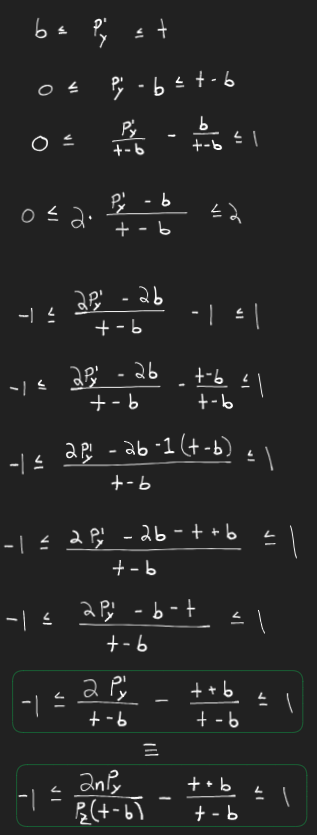 b ≤ P'y ≤ t
0 ≤ P'y - b ≤ t - b
0 ≤ P'y/(t-b) - b/(t-b) ≤ 1
0 ≤ 2 · (P'y - b)/(t - b) ≤ 2
-1 ≤ (2P'y - 2b)/(t - b) - 1 ≤ 1
-1 ≤ (2P'y - 2b)/(t - b) - (t-b)/(t-b) ≤ 1
-1 ≤ (2P'y - 2b - 1(t-b))/(t-b) ≤ 1
-1 ≤ (2P'y - 2b - t + b)/(t-b) ≤ 1
-1 ≤ (2P'y - b - t)/(t-b) ≤ 1
-1 ≤ 2P'y/(t-b) - (t+b)/(t-b) ≤ 1
≡
-1 ≤ 2nPy/(Pz(t-b)) - (t+b)/(t-b) ≤ 1